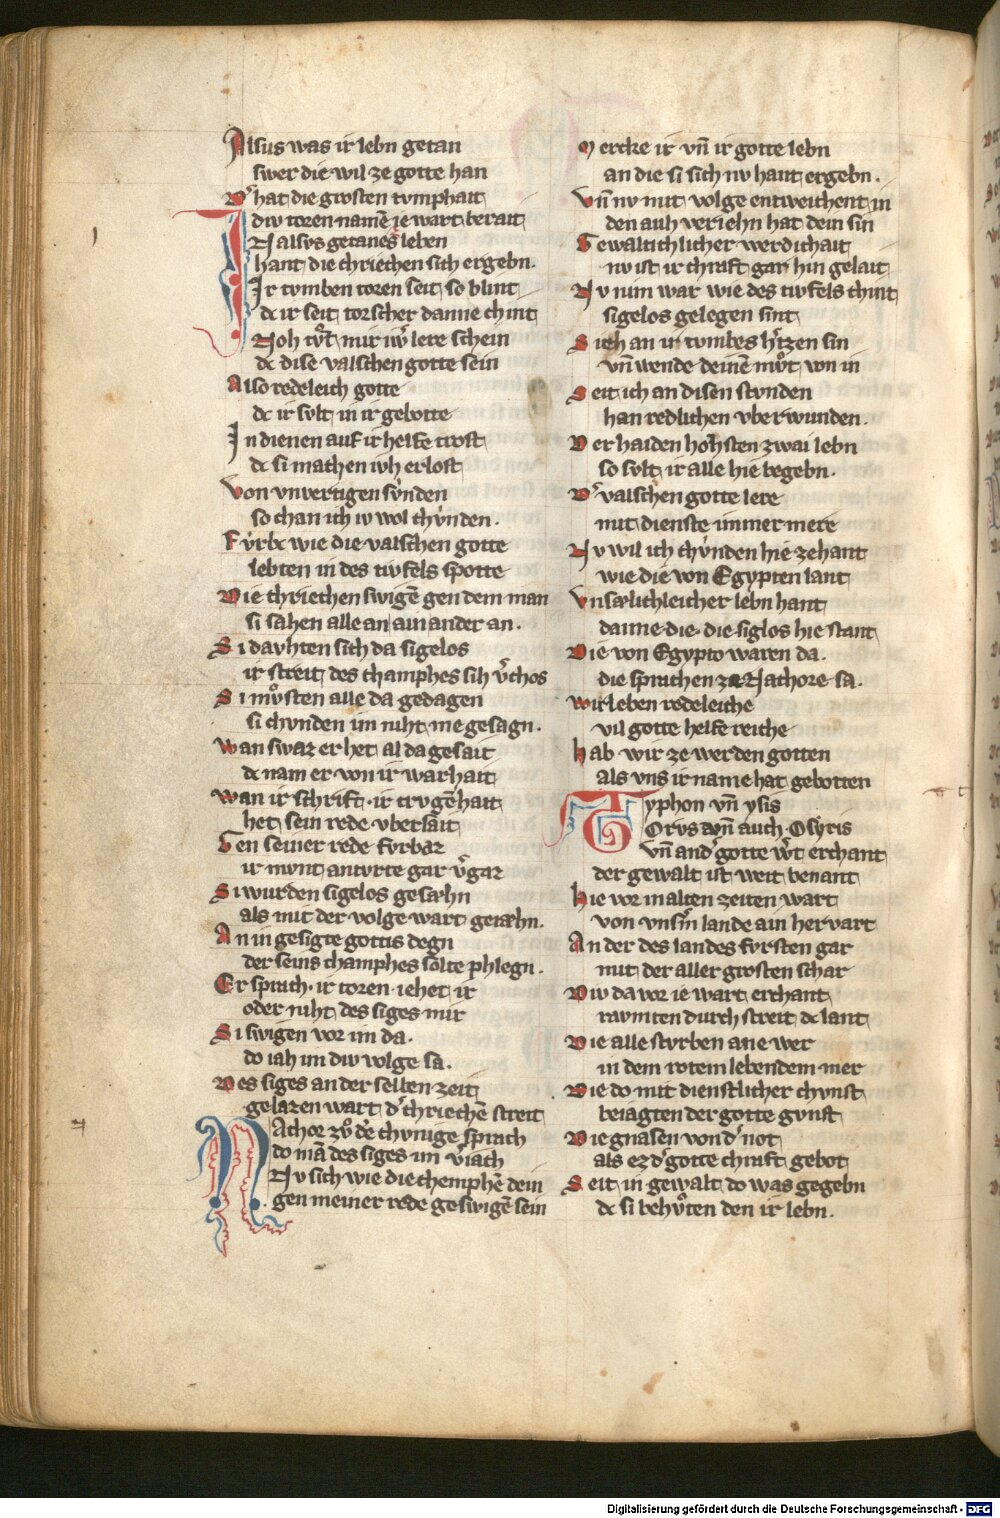 Alsus was ir lebn getan
swer die wil ze gotte han
Dͬ hat die grosten tvmphait
div toren namē ie wart berait
IN alsvs getanes leben
hant die chriechen sich ergebn.
Ir tvmben toren seit so blint
dc ir seit torscher danne chint
Noh tv̊t mir iwͬ lere schein
dc dise valschen gotte sein
Also redeleich gotte
dc ir svlt in ir gebotte
In dienen auf ir helfe trost
dc si machen ivh erlost
Von vnvertigen sv̊nden
so chan ich iv wol chv̊nden.
Fvrbc wie die valschen gotte
lebten in des tivfels spotte
Die chriechen swigē gen dem man
si sahen alle an ain ander an.
Si davhten sich da sigelos
ir streit des champhes sih vͬchos
Si mv̊sten alle da gedagen
si chvnden im niht me gesagn.
Wan swaz er het al da gesait
dc nam er von ir warhait
Wan ir schrift ir trvgēhait
het sein rede vbersait
Gen seiner rede fvrbaz
ir mvnt antvrte gar vͬgaz
Si wurden sigelos gesæhn
als mit der volge wart geiæhn.
An in gesigte gottis degn
der seins champhes solte phlegn.
Er sprach · ir toren · iehet ir
oder niht des siges mir
Si swigen vor im da.
do iah im div volge sa.
Des siges an der selben zeit
gelazen wart dͬ chriechē streit
Nathor zv̊ dē chvnige sprach
do mā des siges im vͬiach
Nv sich wie die chemphē dein
gen meiner rede geswigē sein
Mercke ir vn̄ ir gotte lebn
an die si sich nv hant ergebn.
Vn̄ nv mit volge entweichent in
den auh veriehn hat dein sin
Gewaltichlicher werdichait
nv ist ir chraft gar hin gelait
Nv nim war wie des tivfels chint
sigelos gelegen sint
Sieh an ir tvmbes hͬtzen sin
vn̄ wende deinē mv̊t von in
Seit ich an disen stvnden
han redlichen vberwunden.
Der haiden hohsten zwai lebn
so svlt ir alle hie begebn.
Dͬ valschen gotte lere
mit dienste immer mere
Nv wil ich chv̊nden hie zehant
wie die von Egypten lant
Vnsælichleicher lebn hant
danne die · die siglos hie stant
Die von Egypto waren da.
die sprachen ze Nathore sa.
Wir leben redeleiche
vil gotte helfe reiche
Hab wir ze werden gotten
als vns ir name hat gebotten
Typhon vn̄ ysis
Orvs vn̄ auch Osyris
vn̄ andͬ gotte wͬt erchant
der gewalt ist weit benant
Hie vor in alten zeiten wart
von vnsͬm lande ain hervart
An der des landes fvrsten gar
mit der aller grosten schar
Div da vor ie wart erchant
ravmten durch streit dc lant
Die alle stvrben ane wer
in dem rotem lebendem mer
Die do mit dienstlicher chvnst
beiagten der gotte gvnst
Die gnasen von dͬ not
als ez dͬ gotte chraft gebot
Seit in gewalt do was gegebn
dc si behv̊ten den ir lebn.
Digitalisierung gefördert durch die Deutsche Forschungsgemeinschaft - DFG